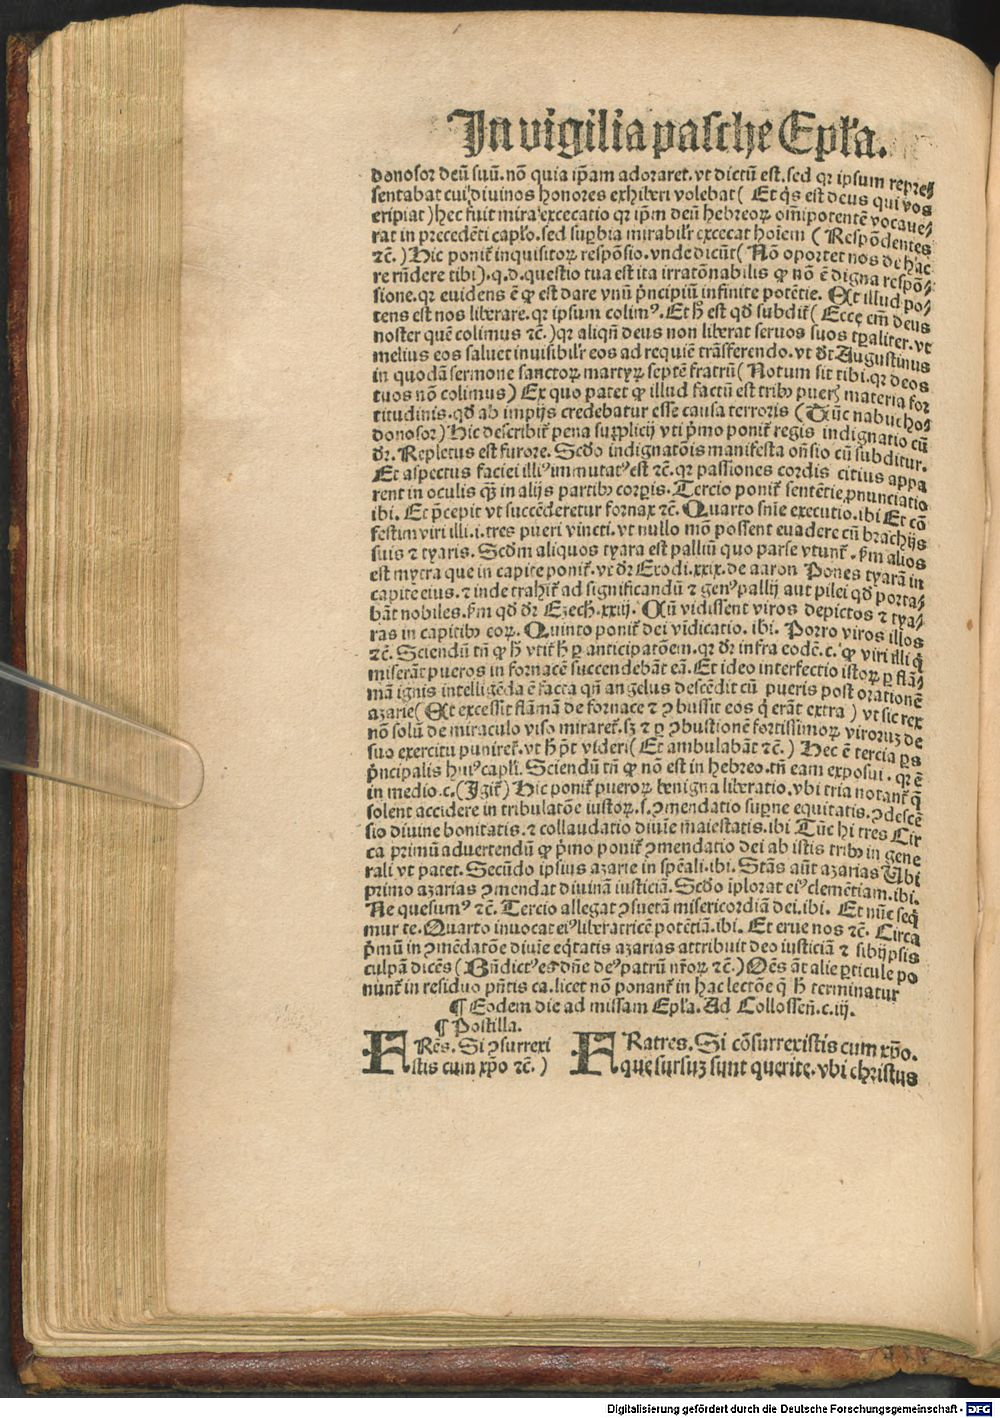 In vigilia pasche Epľa.
donosor deū suū. nō quia ip̄am adoraret. vt dictū est. sed qr ipsum repre⸗
sentabat cui diuinos honores exhiberi volebat ( Et q̇s est deus qui vos
eripiat ) hec fuit mira excecatio qr ip̄m deū hebreoꝝ om̄ipotentē vocaue⸗
rat in precedēti capľo. sed suꝑbia mirabilr̄ excecat hoīem ( Respōdentes
⁊c̄. ) Hic ponit̄ inquisitoꝝ respōsio. vnde dicūt ( Nō oportet nos de hac
re rn̄dere tibi ). q. d. questio tua est ita irratōnabilis ꝙ nō ē digna respō⸗
sione. qr euidens ē ꝙ est dare vnū pͥncipiū infinite potētie. Et illud po⸗
tens est nos liberare. qr ipsum colimꝰ. Et h̄ est qd̄ subdit̄ ( Ecce em̄ deus
noster quē colimus ⁊c̄. ) qr aliqn̄ deus non liberat seruos suos tꝑaliter. vt
melius eos saluet inuisibilr̄ eos ad requiē trāsferendo. vt dr̄ Augustinus
in quodā sermone sanctoꝝ martyꝝ septē fratrū ( Notum sit tibi. qr deos
tuos nō colimus ) Ex quo patet ꝙ illud factū est tribꝰ pueris materia for
titudinis. qd̄ ab impijs credebatur esse causa terroris ( Tūc nabucho⸗
donosor ) Hic describit̄ pena supplicij vti pͥmo ponit̄ regis indignatio cū
dr̄. Repletus est furore. Scd̄o indignatōis manifesta on̄sio cū subditur.
Et aspectus faciei illiꝰ immutatꝰ est ⁊c̄. qr passiones cordis citius appa
rent in oculis qȝ in alijs partibꝰ corꝑis. Tercio ponit̄ sentētie ꝓnunciatio
ibi. Et p̄cepit vt succēderetur fornax ⁊c̄. Quarto sn̄ie executio. ibi Et cō
festim viri illi. i. tres pueri vincti. vt nullo mō possent euadere cū brachijs
suis ⁊ tyaris. Scd̄m aliquos tyara est palliū quo parse vtunt̄. ẜm alios
est mytra que in capite ponit̄. vt dr̄ Exodi. xxix. de aaron Pones tyarā in
capitē eius. ⁊ inde trahit̄ ad significandū ⁊ genꝰ pallij aut pilei qd̄ porta⸗
bāt nobiles. ẜm qd̄ dr̄ Ezech̄. xxiij. Cū vidissent viros depictos ⁊ tya⸗
ras in capitibꝰ eoꝝ. Quinto ponit̄ dei vīdicatio. ibi. Porro viros illos
⁊c̄. Sciendū tn̄ ꝙ h̄ vtit̄ h̄ ꝑ anticipatōem. qr dr̄ infra eodē. c. ꝙ viri illi q̇
miserāt pueros in fornacē succendebāt eā. Et ideo interfectio istoꝝ ꝑ flā⸗
mā ignis intelligēda ē facta qn̄ angelus descēdit cū pueris post orationē
azarie ( Et excessit flāmā de fornace ⁊ ↄbussit eos q̇ erāt extra ) vt sic rex
nō solū de miraculo viso miraret̄. sȝ ⁊ ꝑ ↄbustionē fortissimoꝝ viroruȝ de
suo exercitu puniret̄. vt h̄ pȝt videri ( Et ambulabāt ⁊c̄. ) Hec ē tercia ꝑs
pͥncipalis huiꝰ capľi. Sciendū tn̄ ꝙ nō est in hebreo. tn̄ eam exposui. qr ē
in medio. c. ( Igit̄ ) Hic ponit̄ pueroꝝ benigna liberatio. vbi tria notant̄ q̄
solent accidere in tribulatōe iustoꝝ. s. ↄmendatio suꝑne equitatis. ↄdescē
sio diuine bonitatis. ⁊ collaudatio diuīe maiestatis. ibi Tūc hi tres Cir
ca primū aduertendū ꝙ pͥmo ponit̄ ↄmendatio dei ab istis tribꝰ in gene
rali vt patet. Secūdo ipsius azarie in spēali. ibi. Stās aūt azarias Vbi
primo azarias ↄmendat diuinā iusticiā. Scd̄o īplorat eiꝰ clemētiam. ibi.
Ne quesumꝰ ⁊c̄. Tercio allegat ↄsuetā misericordiā dei. ibi. Et nūc seq̇
mur te. Quarto inuocat eiꝰ liberatricē potētiā. ibi. Et erue nos ⁊c̄. Circa
pͥmū in ↄmēdatōe diuīe eq̇tatis azarias attribuit deo iusticiā ⁊ sibijpsis
culpā dicēs ( Bn̄dictꝰ es dn̄e deꝰ patrū nr̄oꝝ ⁊c̄. ) Oēs āt alie ꝑticule po
nunt̄ in residuo pn̄tis ca. licet nō ponant̄ in hac lectōe q̇ h̄ terminatur
¶ Eodem die ad missam Epľa. Ad Collossen̄. c. iij.
¶ Postilla.
FRēs. Si ↄsurrexi
stis cum xp̄o ⁊c̄. )
FRatres. Si cōsurrexistis cum xp̄o.
que sursuȝ sunt querite. vbi christus
Digitalisierung gefördert durch die Deutsche Forschungsgemeinschaft - DFG